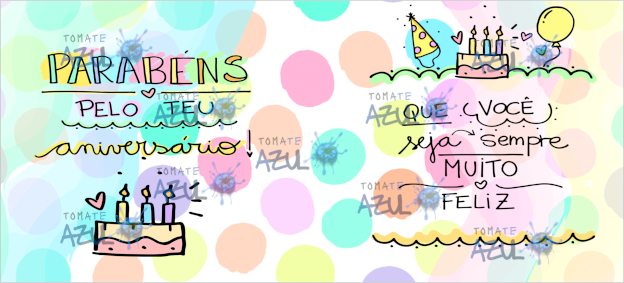 PARABÉNS
PELO TEU
aniversário!
QUE VOCÊ:
seja sempre
MUITO
FELIZ
TOMATE AZUL
TOMATE AZUL
TOMATE AZUL
TOMATE AZUL
TOMATE AZUL
TOMATE AZUL
TOMATE AZUL
TOMATE AZUL
TOMATE AZUL
TOMATE AZUL